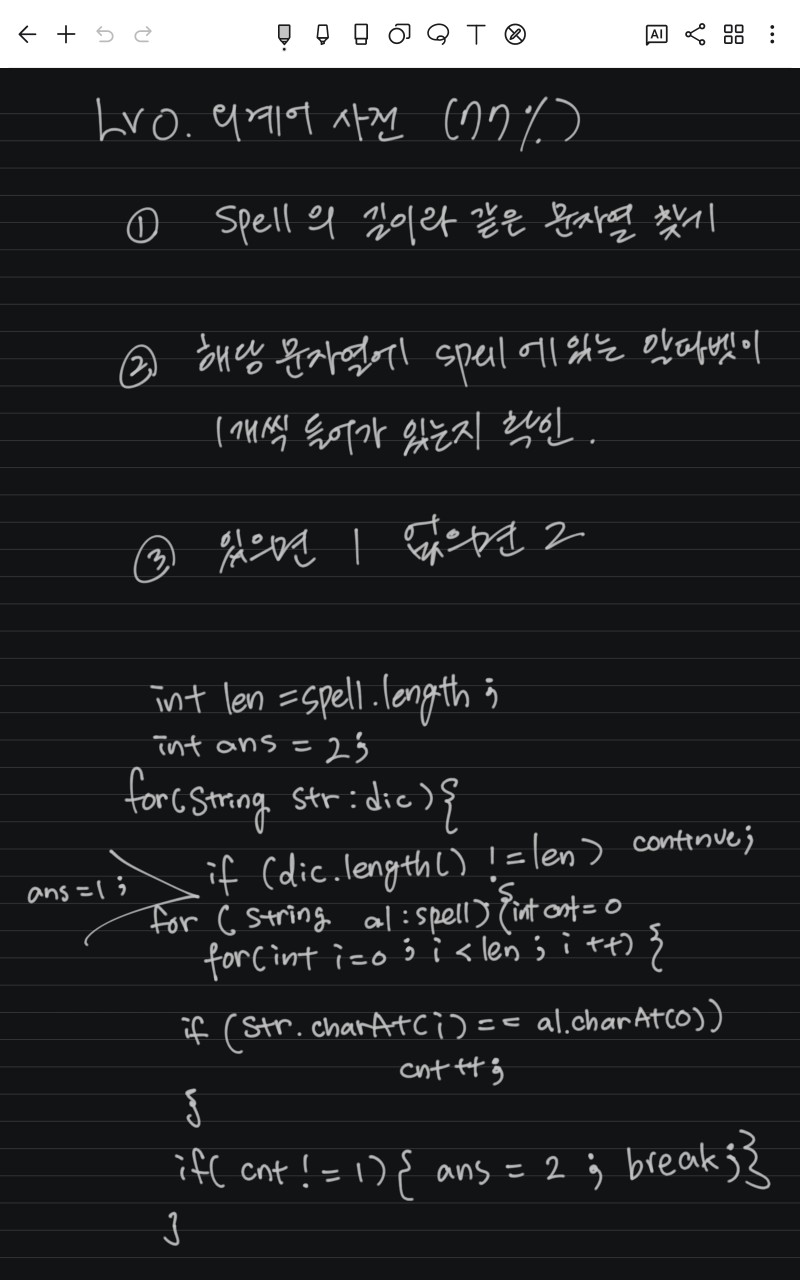 AI
Lv0. 외계어 사전 (77%)
① spell의 길이라 같은 문자열 찾기
② 해당 문자열에 spell에 있는 알파벳이
1개씩 들어가 있는지 확인.
③ 있으면 1 없으면 2
int len =spell.length;
int ans = 2;
for(String str:dic){
if (dic.length() !=len) continue;
ans=1;
for (String al:spell){int cnt=0
for(int i=0; i<len; i++) {
if (str.charAt(i)== al.charAt(0))
cnt++;
}
if( cnt != 1){ ans = 2; break;}}
}